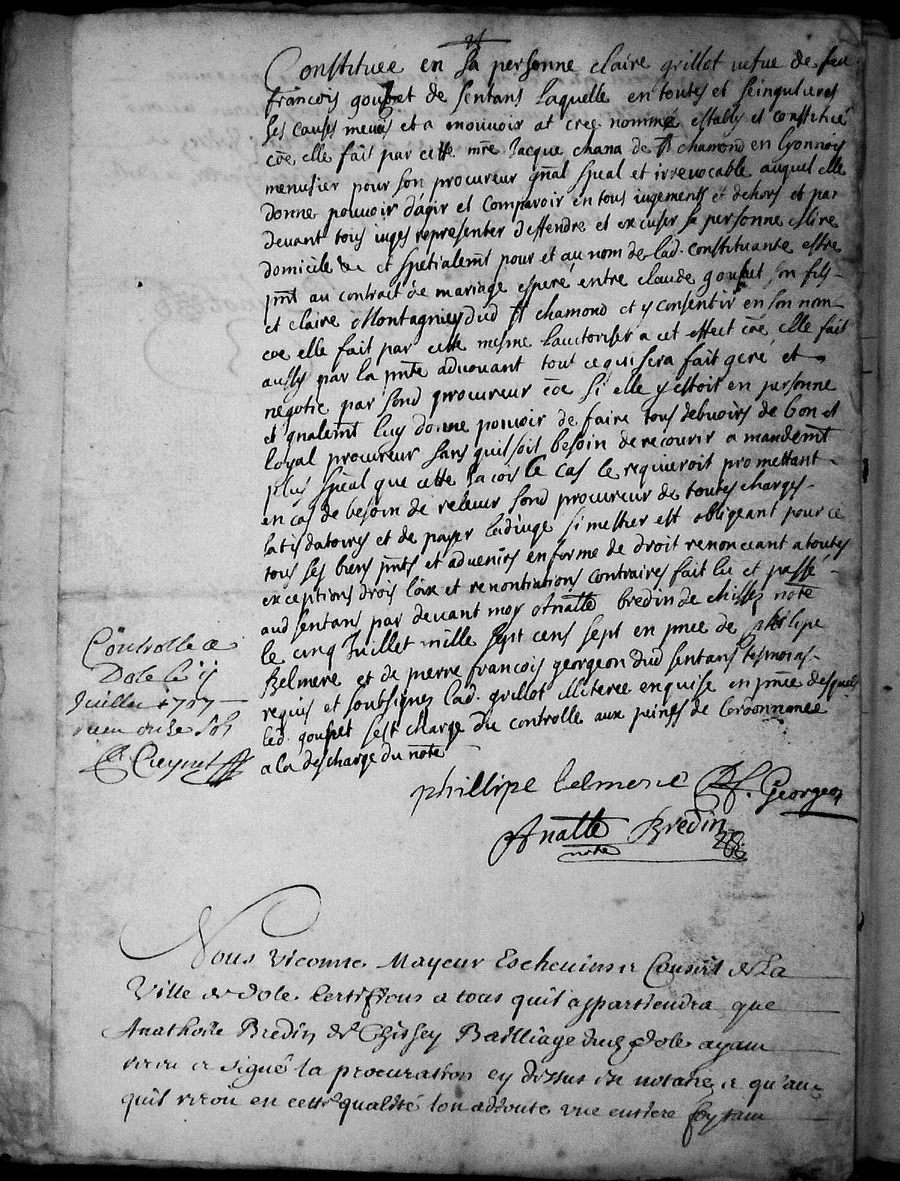 Constituée en sa personne claire grillot vefue de feu
francois goufet de sentans laquelle en toutes et seingulieres
ses causes meues et a mouvoir at cree nomme estably et constitué
coe elle fait par cette mre Jacque chana de st chamond en Lyonnois
menusier pour son procureur gnâl speal et irrevocable auquel elle
donne pouvoir d'agir et comparoir en tous iugements et dehors et par
devant tous iuges representer deffendre et excuser sa personne eslire
domicile &c et spetialemt pour et au nom de lad. constituante estre
pnt au contract de mariage esperé entre claude goufet son fils
et claire Montagnier dud st chamond et y consentir en son nom
coe elle fait par cette mesme lauctoriser a cet effect coe elle fait
aussy par la pnte advouant tout ce qui sera fait geré et
negotié par sond procureur coe si elle y estoit en personne
et gnalemt luy donne pouvoir de faire tous debuoirs de bon et
loyal procureur sans quil soit besoin de recourir a mandemt
plus speal que cette ja cois le cas le requieroit promettant
en cas de besoin de relever sond procureur de toutes charges
satisdatoires et de payer ladiuge si mestier est obligeant pour ce
tous ses biens pnts et advenirs en forme de droit renonceant a toutes
exceptions drois loix et renontiations contraires fait lu et passé
aud sentans par devant moy Anatle bredin de chissey note
le cinq Juillet mille sept cens sept en pnce de philipe
Belmere et de pierre francois georgeon dud sentans tesmoins
requis et soubsignes lad. grillot illiteree enquise en pnce desquels
led. goufet sest chargé du controlle aux peines de lordonnance
a la descharge du note
Controlle a
Dole le ii
Juillet 1707
receu onze sols
phillipe belmere PF. Georgeon
Anatle Bredin
note
Nous Vicomte Mayeur Eschevins et Conseil de La
Ville de dole Certifions a tous quil appartiendra que
Anathoile Bredin de Chissey Bailliage dud dole ayant
receu et signé la procuration cy dessus est notaire et qu'aux
quil recoit en cette qualité lon adjoute une entiere foy tant